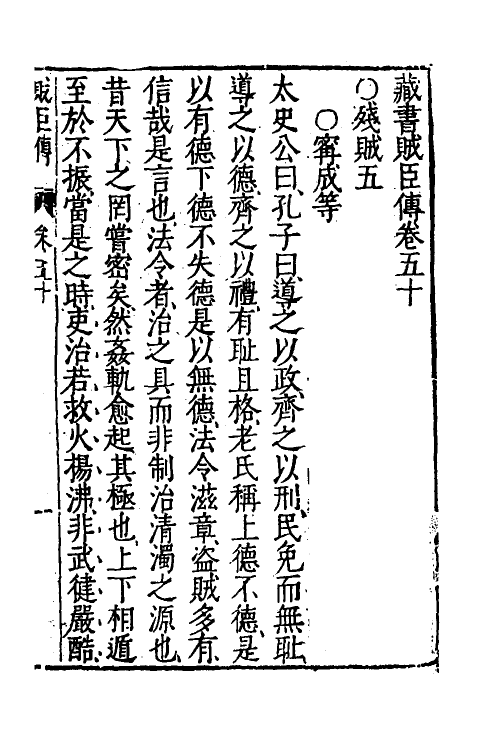 藏書賊臣傳卷五十
○殘賊五
○甯成等
太史公曰孔子曰導之以政齊之以刑民免而無耻
導之以德齊之以禮有耻且格老氏稱上德不德是
以有德下德不失德是以無德法令滋章盜賊多有
信哉是言也法令者治之具而非制治清濁之源也
昔天下之罔嘗密矣然姦軌愈起其極也上下相遁
至於不振當是之時吏治若救火揚沸非武健嚴酷
賊臣傳 卷五十 一